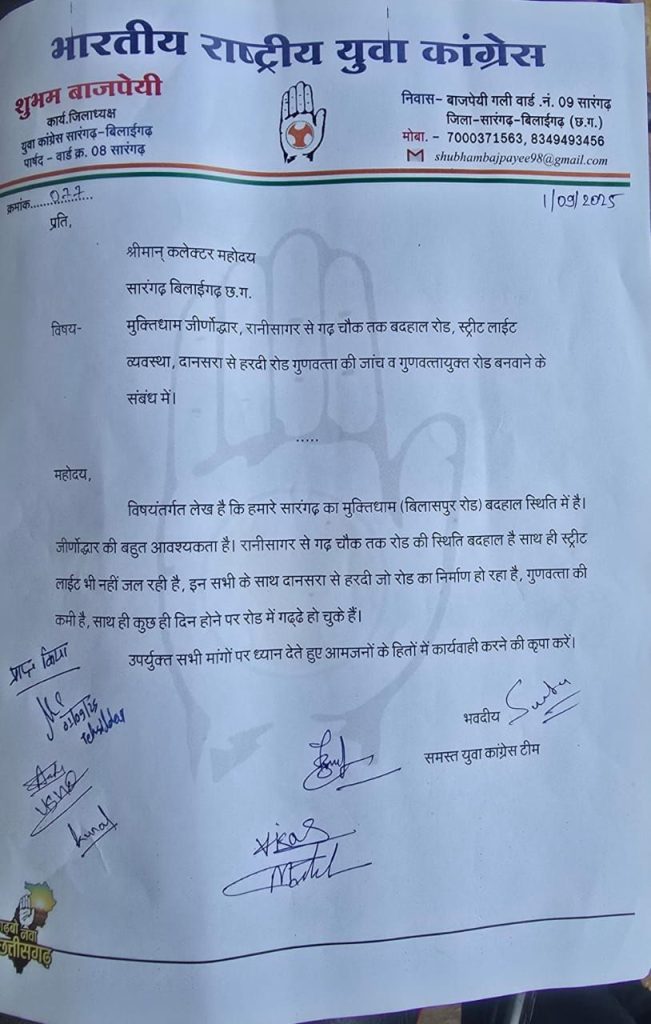 भारतीय राष्ट्रीय युवा कांग्रेस
शुभम बाजपेयी
कार्य.जिलाध्यक्ष
युवा कांग्रेस सारंगढ़-बिलाईगढ़
पार्षद - वार्ड क्र. 08 सारंगढ़
निवास- बाजपेयी गली वार्ड .नं. 09 सारंगढ़
जिला-सारंगढ़-बिलाईगढ़ (छ.ग.)
मोबा. - 7000371563, 8349493456
shubhambajpayee98@gmail.com
क्रमांक......077......
1/09/2025
प्रति,
श्रीमान् कलेक्टर महोदय
सारंगढ़ बिलाईगढ़ छ.ग.
विषय- मुक्तिधाम जीर्णोद्धार, रानीसागर से गढ़ चौक तक बदहाल रोड, स्ट्रीट लाईट
व्यवस्था, दानसरा से हरदी रोड गुणवत्ता की जांच व गुणवत्तायुक्त रोड बनवाने के
संबंध में।
.....
महोदय,
विषयंतर्गत लेख है कि हमारे सारंगढ़ का मुक्तिधाम (बिलासपुर रोड) बदहाल स्थिति में है।
जीर्णोद्धार की बहुत आवश्यकता है। रानीसागर से गढ़ चौक तक रोड की स्थिति बदहाल है साथ ही स्ट्रीट
लाईट भी नहीं जल रही है, इन सभी के साथ दानसरा से हरदी जो रोड का निर्माण हो रहा है, गुणवत्ता की
कमी है, साथ ही कुछ ही दिन होने पर रोड में गढ्ढे हो चुके हैं।
उपर्युक्त सभी मांगों पर ध्यान देते हुए आमजनों के हितों में कार्यवाही करने की कृपा करें।
प्राप्त किया
02/09/25
Tehsildar
भवदीय
समस्त युवा कांग्रेस टीम
Kunal
Vikas
गढ़बो नवा
छत्तीसगढ़